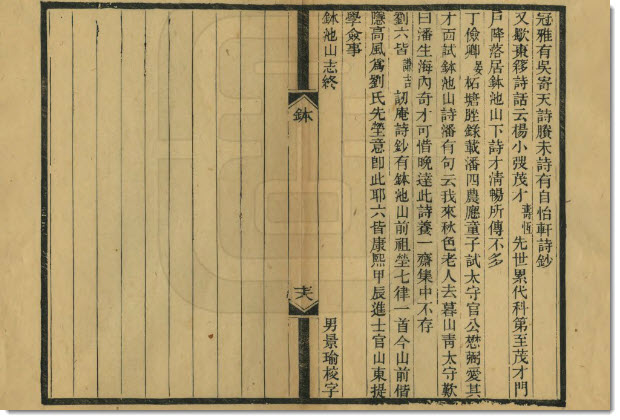 冠雅有吳寄天詩賸未詩有自怡軒詩鈔
又歇𢈪簃詩話云楊小弢茂才壽恆先世累代科第至茂才門
戶降落居鉢池山下詩才淸暢所傳不多
丁儉卿晏柘塘脞錄載潘四農應童子試太守官公懋弼愛其
才面試鉢池山詩潘有句云我來秋色老人去暮山靑太守歎
曰潘生海內奇才可惜晚達此詩養一齋集中不存
劉六皆謙吉訒庵詩鈔有鉢池山前祖塋七律一首今山前偕
隱高風爲劉氏先塋意卽此耶六皆康熙甲辰進士官山東提
學僉事
鉢池山志終
男景瑜校字
鉢
六